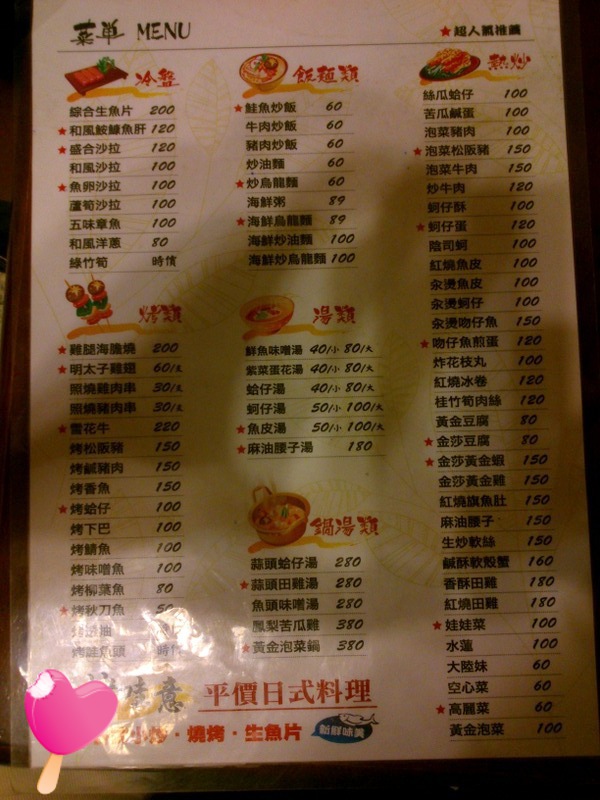 菜單 MENU
★超人氣推薦
冷盤
綜合生魚片 200
★和風鮟鱇魚肝 120
★盛合沙拉 120
和風沙拉 100
★魚卵沙拉 100
蘆筍沙拉 100
五味章魚 100
和風洋蔥 80
綠竹筍 時價
烤類
★雞腿海膽燒 200
★明太子雞翅 60/支
照燒雞肉串 30/支
照燒豬肉串 30/支
★雪花牛 220
烤松阪豬 150
烤鹹豬肉 150
烤香魚 150
★烤蛤仔 100
烤下巴 100
烤鯖魚 100
烤味噌魚 100
烤柳葉魚 80
★烤秋刀魚 50
烤鮭魚頭 時價
飯麵類
★鮭魚炒飯 60
牛肉炒飯 60
豬肉炒飯 60
炒油麵 60
★炒烏龍麵 60
海鮮粥 89
★海鮮烏龍麵 89
海鮮炒油麵 100
海鮮炒烏龍麵 100
湯類
鮮魚味噌湯 40/小 80/大
紫菜蛋花湯 40/小 80/大
蛤仔湯 40/小 80/大
蚵仔湯 50/小 100/大
★魚皮湯 50/小 100/大
★麻油腰子湯 180
鍋湯類
蒜頭蛤仔湯 280
★蒜頭田雞湯 280
魚頭味噌湯 280
鳳梨苦瓜雞 380
★黃金泡菜鍋 380
熱炒
絲瓜蛤仔 100
苦瓜鹹蛋 100
泡菜豬肉 100
★泡菜松阪豬 150
泡菜牛肉 150
炒牛肉 120
蚵仔酥 100
★蚵仔蛋 120
蔭司蚵 100
紅燒魚皮 100
汆燙魚皮 100
汆燙蚵仔 100
汆燙吻仔魚 150
★吻仔魚煎蛋 120
炸花枝丸 100
紅燒冰卷 120
桂竹筍肉絲 120
黃金豆腐 80
★金莎豆腐 80
★金莎黃金蝦 150
金莎黃金雞 150
紅燒旗魚肚 150
麻油腰子 150
生炒軟絲 150
鹹酥軟殼蟹 160
香酥田雞 180
紅燒田雞 180
★娃娃菜 100
水蓮 100
大陸妹 60
空心菜 60
★高麗菜 60
黃金泡菜 100
意 平價日式料理
小炒·燒烤·生魚片 新鮮味美